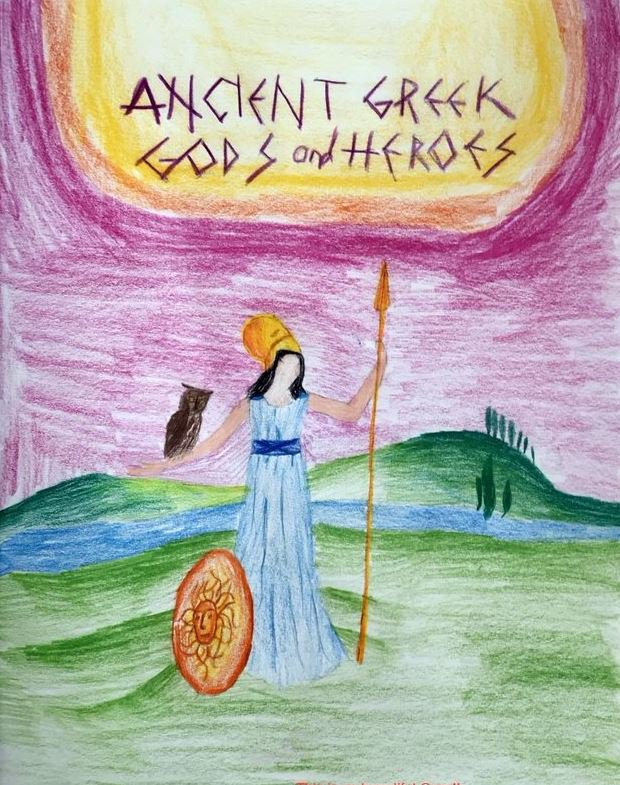 ANCIENT GREEK
GODS and HEROES